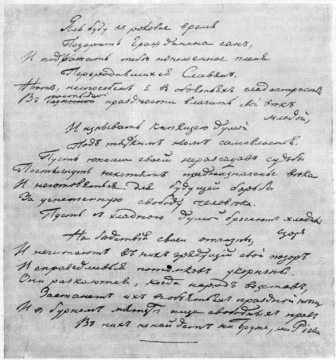 Я ль буду въ роковое время
Позорить Гражданина санъ,
И подражать тебѣ изнѣженное племя
Переродившихся Славянъ.
Нѣтъ, неспособенъ я въ объятьяхъ сладострастья
Въ постыдной праздности влачить свой вѣкъ
младой,
И изнывать кипящею душой
Подъ тяжкимъ игомъ самовластья.
Пусть юноши своей неразгадавъ судьбы
Постигнуть нехотятъ предназначенье вѣка
И неготовятся для будущей борьбы
За угнетенную свободу человѣка.
Пусть съ хладною душой бросаютъ хладный
взоръ
На бедствія своей отчизны
И нечитаютъ въ нихъ грядущій свой позоръ
И справедливыя потомковъ укоризны.
Они раскаются, когда народъ возставъ,
Застанетъ ихъ въ объятьяхъ праздной нѣги
И въ бурномъ мятежѣ ища свободныхъ правъ
Въ нихъ ненайдетъ ни Брута, ни Ріеги